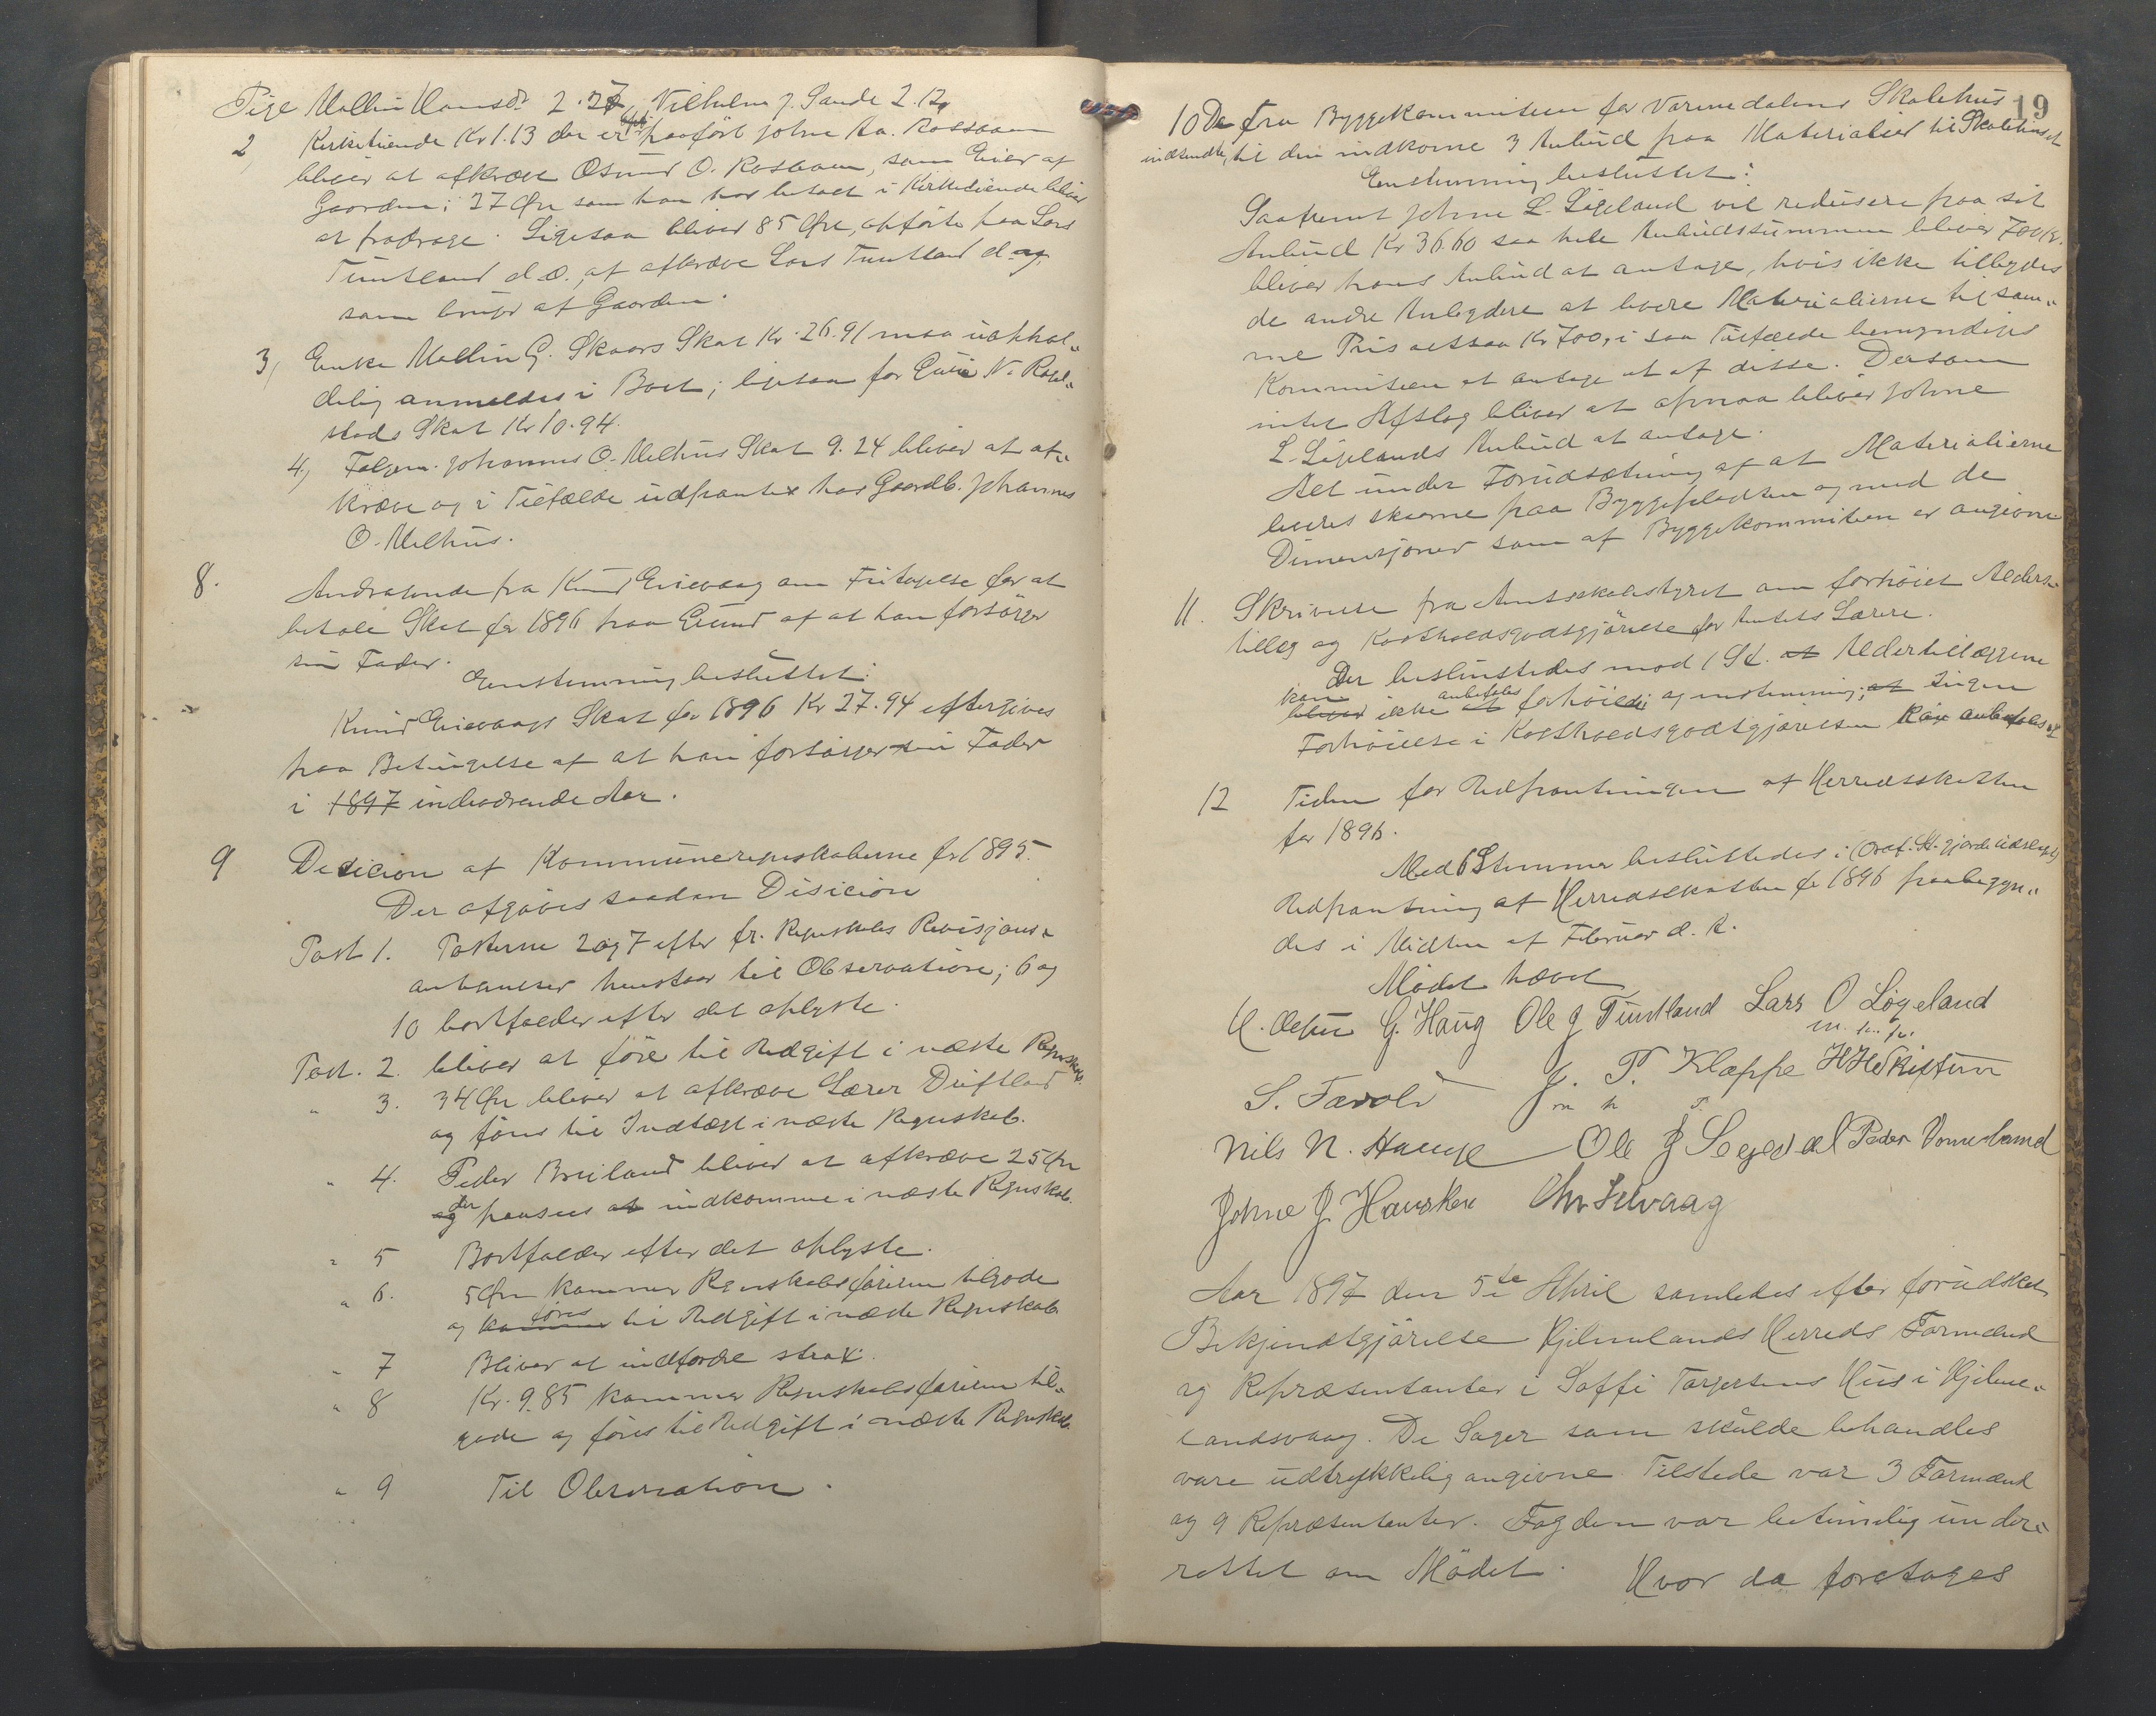 Pige Mallin Hansdr 2.27, Vilhelm J. Sande 2.12.
2, Kirketiende Kr 1.13 der er opført paaført Johne Aa. Rossaven
bliver at afkræve Osmund O. Rosaven, som Eier af
Gaarden; 27 Øre som han har betalt i Kirketiende bliver
at fradrage. Ligesaa bliver 85 Øre, opførte paa Lars
Tuntland d.æ., at afkræve Lars Tuntland d. yg.
som bruger af Gaarden.
3, Enke Mallin G. Skaars Skat Kr. 26.91 maa uophol-
delig anmeldes i Boet; ligesaa for N. Rag
stads Skat Kr 10.94.
4, Følgem. Johannes O. Melhus Skat 9.24 bliver at af-
kræve og i Tilfælde udpantes hos Gaardb. Johannes
O. Melhus.
8. Andragende fra Knud Erievaag om Fritagelse for at
betale Skat for 1896 paa Grund af at han forsörger
sin Fader.
Enstemmig besluttet:
Knud Erievaags Skat for 1896 Kr 27.94 eftergives
paa Betingelse af at han forsörger sin Fader
i 1897 indeværende Aar.
9 Desicion af Kommuneregnskaberne for 1895.
Der afgaves saadan Disicion
Post 1. Posterne 2 og 7 efter fr. Regnskabs Revisjons-
antegnelser henstaar til Observation; 6 og
10 bortfalder efter det oplyste.
Post. 2. bliver at före til Udgift i næste Regnskab.
" 3. 34 Øre bliver at afkræve Lærer Driftland
og föres til Indtægt i næste Regnskab.
" 4. Peder Breiland bliver at afkræve 25 Øre
og der paasees at indkomme i næste Regnskab.
" 5 Bortfalder efter det oplyste.
" 6. 5 Øre kommer Regnskabsföreren tilgode
og kommer föres til Udgift i næste Regnskab
" 7 Bliver at indfordre strax.
" 8 Kr. 9.85 kommer Regnskabsföreren til-
gode og föres til Udgift i næste Regnskab.
" 9 Til Observation.
19
10 De fra Byggekommiteen for Varmedalens Skolehus
indsendte, til den indkomne 3 Anbud paa Materialier til Skolehuset
Enstemmig besluttet:
Saafremt Johne L. Ligeland vil redusere paa sit
Anbud Kr 36.60 saa hele Anbudssummen bliver 700 Kr.
bliver hans Anbud at antage, hvis ikke tilbydes
de andre Anbydere at levere Materialierne til sam-
me Pris altsaa Kr 700, i saa Tilfælde bemyndiges
Kommiteen at antage et af disse. Dersom
intet Afslag bliver at opnaa bliver Johne
L. Ligelands Anbud at antage.
Alt under Forudsætning af at Materialierne
leveres skarne paa Byggepladsen og med de
Dimensjoner som af Byggekommiteen er angivne
11. Skrivelse fra Amtsskolestyret om forhöiet Alders-
tillæg og Kostholdsgodtgjörelse for Amtets Lærere.
Der besluttedes mod 1 St. at Alderstillæggene
kan bliver ikke at anbefales forhöiede; og enstemmig; at ingen
Forhöielse i Kostholdsgodtgjörelsen kan anbefales
12 Tiden for Udpantningen af Herredsskatten
for 1896.
Med 6 Stemmer besluttedes: (Ordf. St. gjorde udslaget)
Udpantning af Herredsskatten for 1896 paabegyn-
des i Midten af Februar d. A.
Mödet hævet
G. Haug Ole J Tuntland Lars O Ligeland
m. p. p.
S. Færold J. T. Klappe
m p P.
Nils N. Hauge Ole J Segedal Peder Vormeland
Johne J. Hausken Chr Selvaag
Aar 1897 den 5te April samledes efter forudsket
Bekjendtgjörelse Hjelmelands Herreds Formænd
og Repræsentanter i Soffi Torgersens Hus i Hjelme-
landsvaag. De Sager som skulde behandles
vare udtrykkelig angivne. Tilstede var 3 Formænd
og 9 Repræsentanter. Fogden var betimelig under-
rettet om Mödet. Hvor da foretages